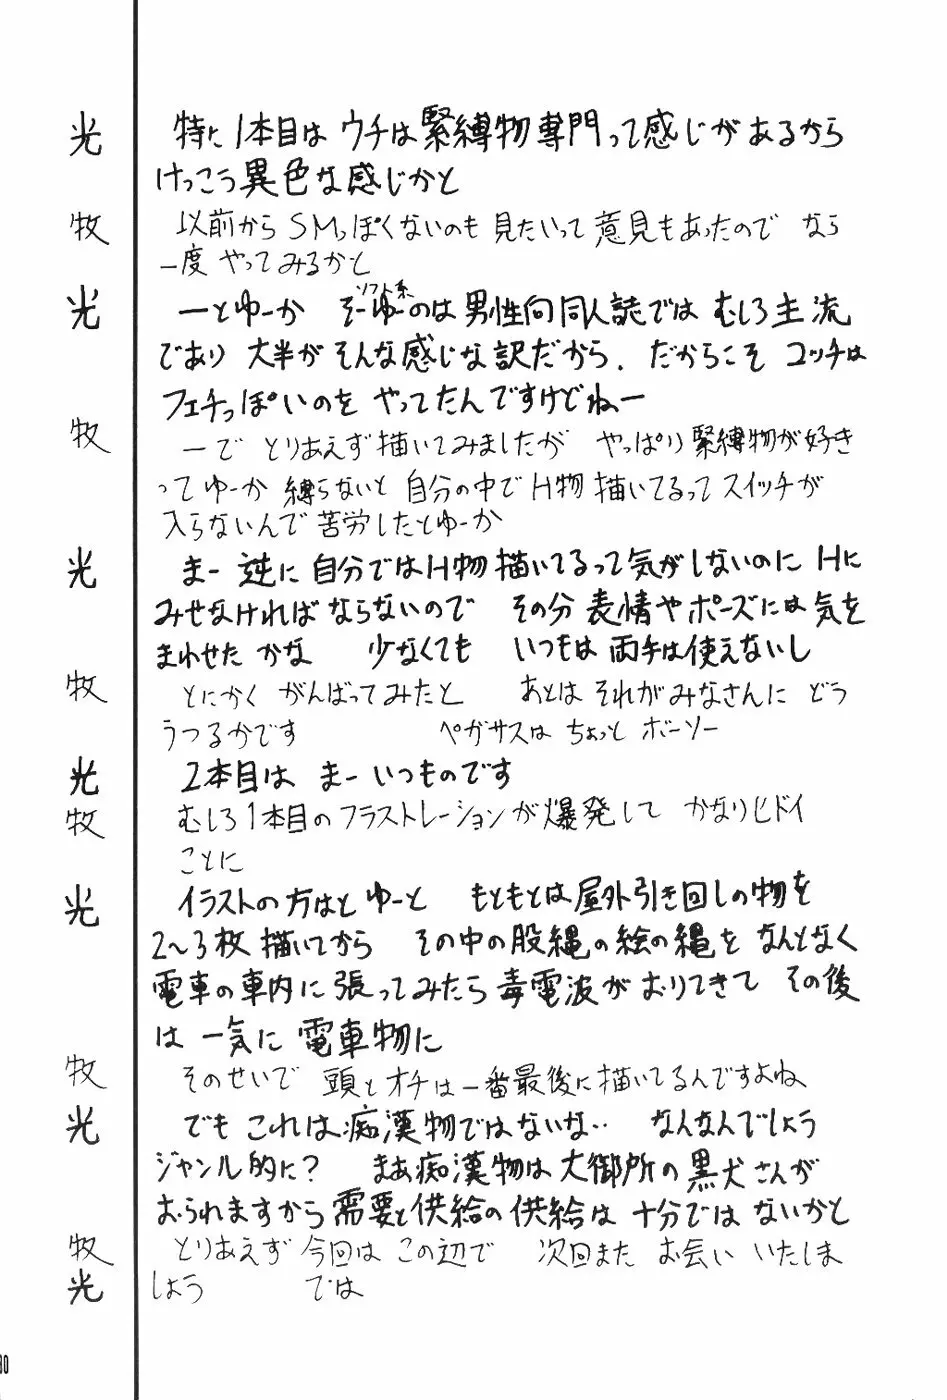 光 特に1本目は ウチは緊縛物専門って感じがあるから
けっこう異色な感じかと
牧 以前から SMっぽくないのも 見たいって 意見もあったので なら
一度 やってみるかと
光 ーとゆーか そーゆーのは 男性向同人誌では むしろ主流
ソフト系
であり 大半が そんな感じな訳だから. だからこそ コッチは
フェチっぽいのを やってたんですけどねー
牧 ーで とりあえず描いてみましたが やっぱり緊縛物が好き
ってゆーか 縛らないと 自分の中で H物 描いてるって スイッチが
入らないんで 苦労したとゆーか
光 まー 逆に 自分では H物 描いてるって気がしないのに Hに
みせなければ ならないので その分 表情や ポーズには 気を
まわせた かな 少なくても いつもは 両手は使えないし
牧 とにかく がんばってみたと あとは それが みなさんに どう
うつるかです ペガサスは ちょっと ボーソー
光 2本目は まー いつものです
牧 むしろ1本目のフラストレーションが 爆発して かなりヒドイ
ことに
光 イラストの方はと ゆーと もともとは 屋外引き回しの物を
2〜3枚 描いてから その中の股縄の絵の縄を なんとなく
電車の車内に 張ってみたら 毒電波が おりてきて その後
は 一気に 電車物に
牧 そのせいで 頭とオチは 一番最後に描いてるんですよね
光 でも これは 痴漢物ではないな‥ なんなんでしょう
ジャンル的に? まあ痴漢物は 大御所の 黒犬さんが
おられますから 需要と供給の 供給は 十分では ないかと
牧 とりあえず 今回は この辺で 次回また お会い いたしま
光 しょう では
30